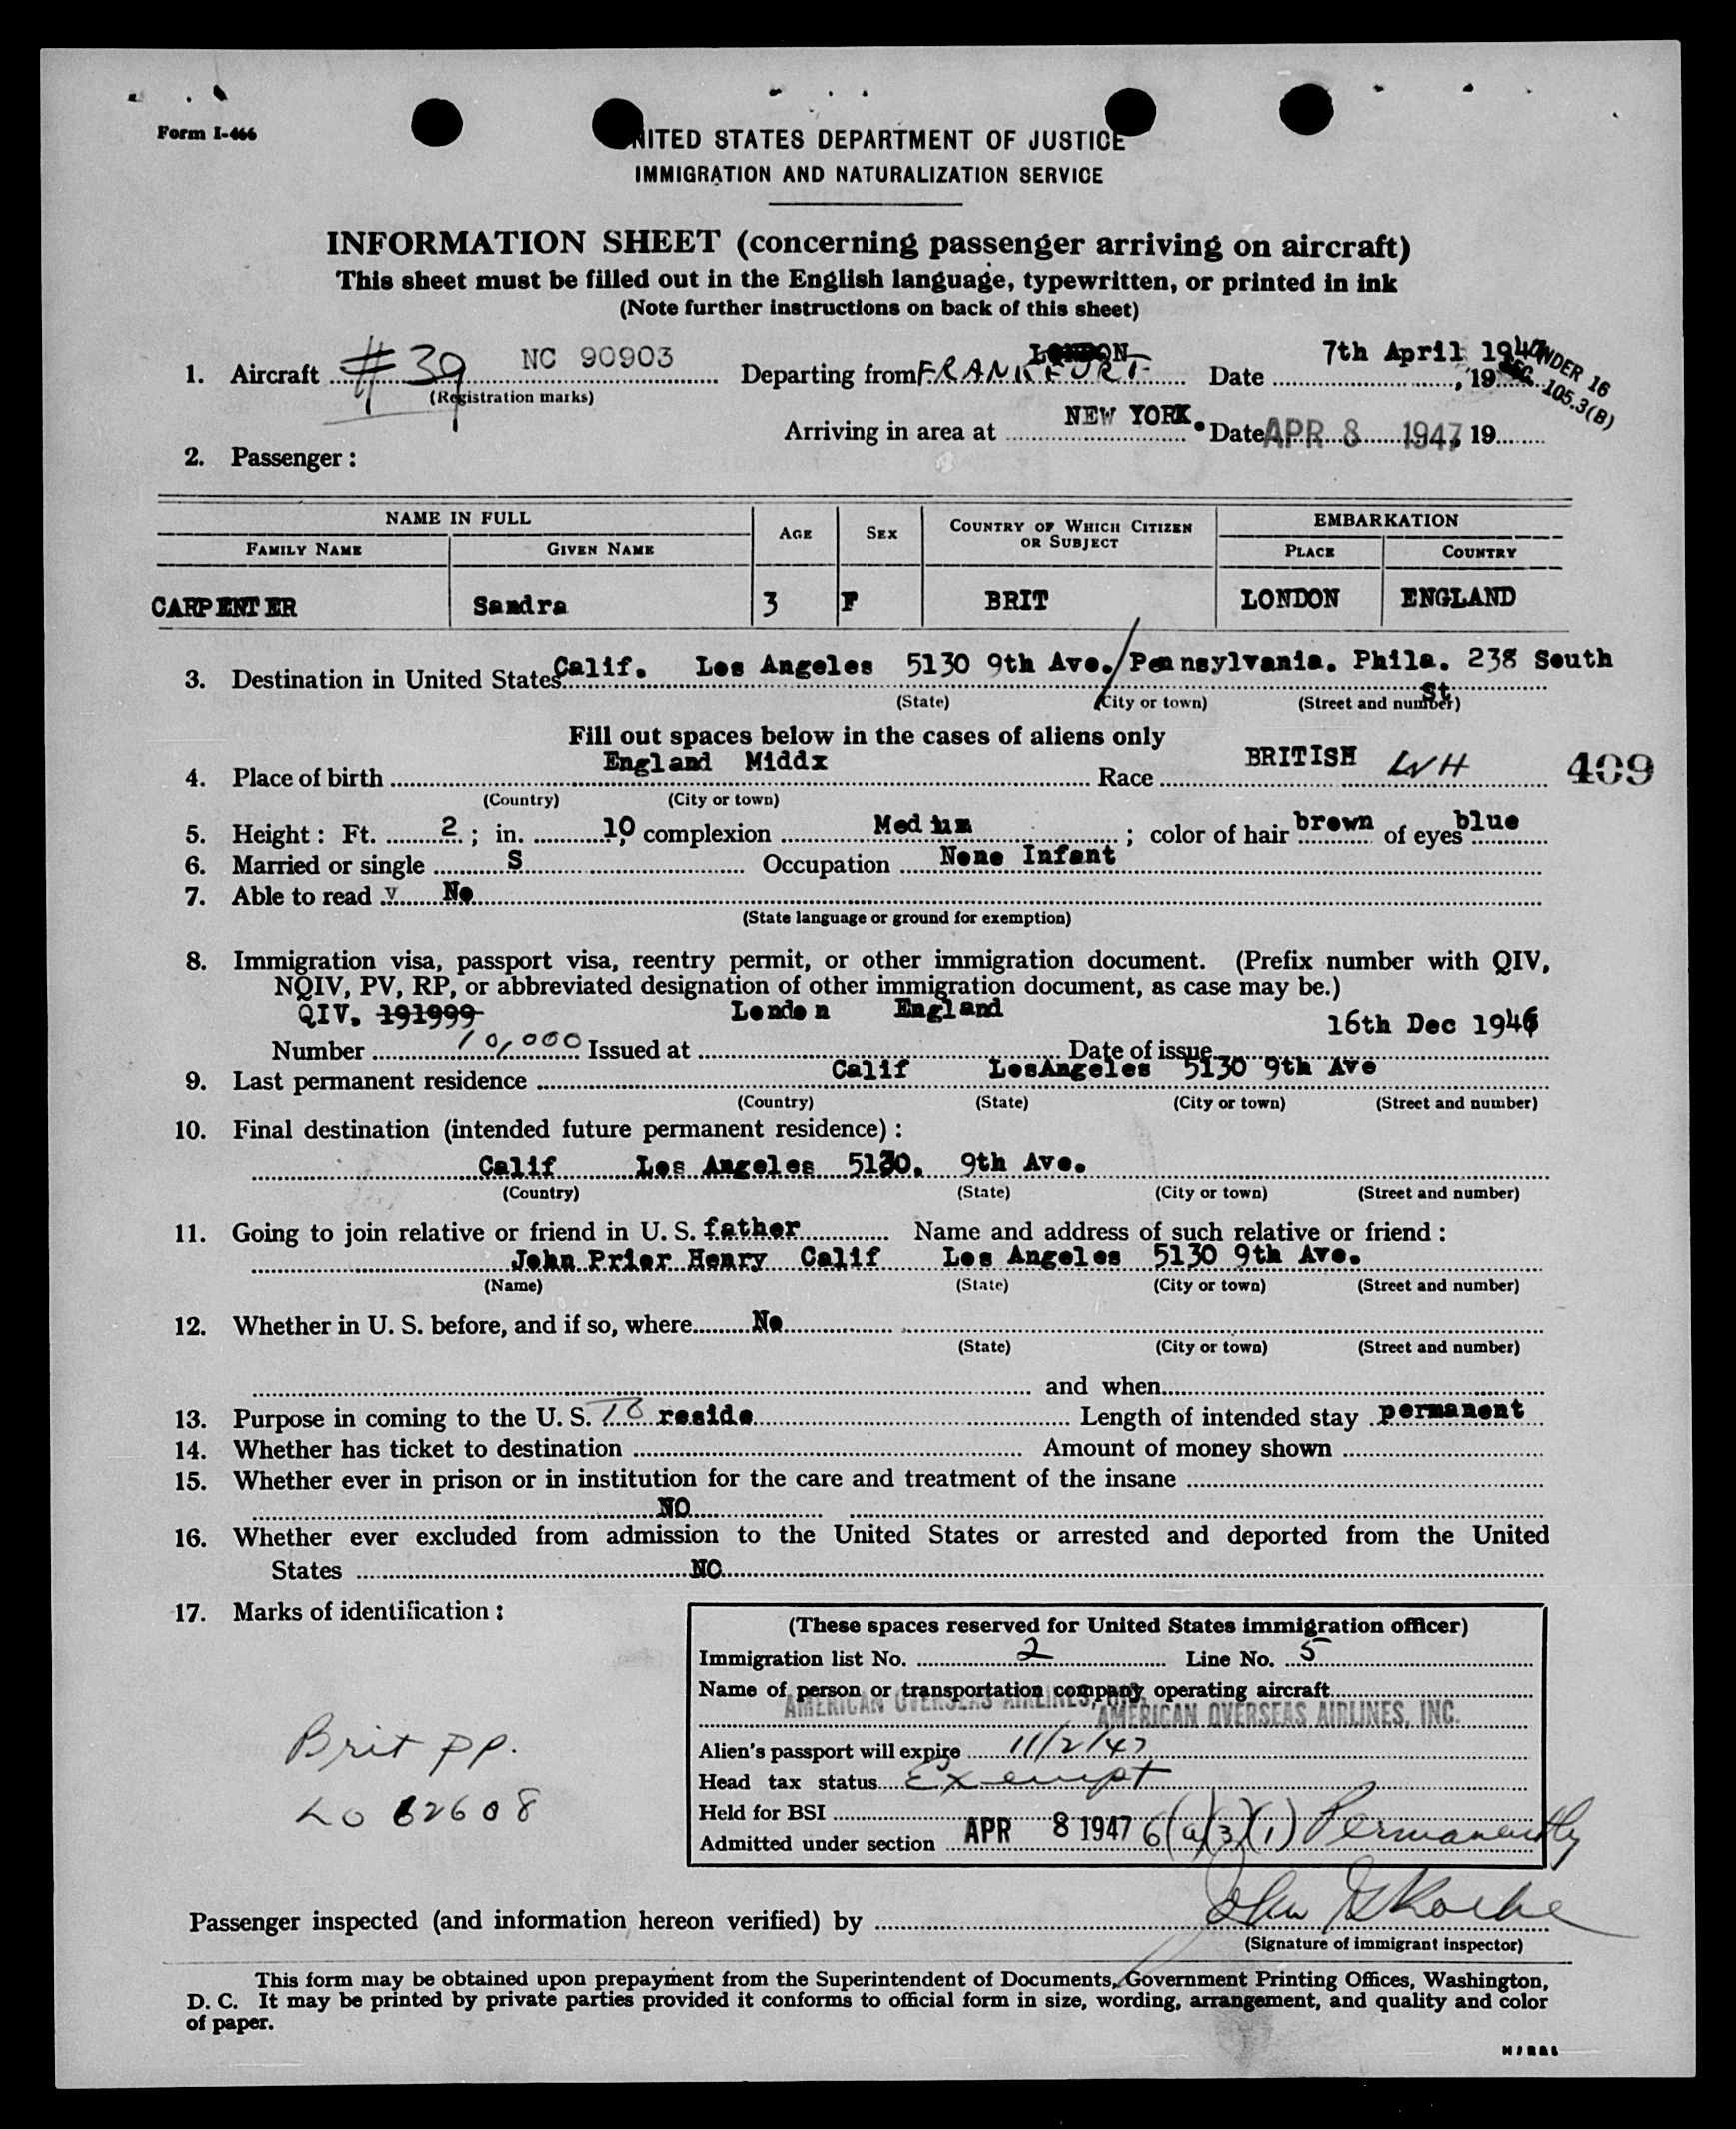 Form I-466
UNITED STATES DEPARTMENT OF JUSTICE
IMMIGRATION AND NATURALIZATION SERVICE
INFORMATION SHEET (concerning passenger arriving on aircraft)
This sheet must be filled out in the English language, typewritten, or printed in ink
(Note further instructions on back of this sheet)
1. Aircraft #39 NC 90903 Departing from LONDON FRANKFURT Date 7th April 1947, 19
(Registration marks)
UNDER 16
SEC. 105.3(B)
Arriving in area at NEW YORK. Date APR 8 1947, 19
2. Passenger:
NAME IN FULL AGE SEX COUNTRY OF WHICH CITIZEN OR SUBJECT EMBARKATION
FAMILY NAME GIVEN NAME PLACE COUNTRY
CARPENTER Sandra 3 F BRIT LONDON ENGLAND
3. Destination in United States Calif. Los Angeles 5130 9th Ave./Pennsylvania. Phila. 238 South St
(State) (City or town) (Street and number)
Fill out spaces below in the cases of aliens only
4. Place of birth England Middx Race BRITISH WH 409
(Country) (City or town)
5. Height: Ft. 2; in. 10, complexion Medium; color of hair brown of eyes blue
6. Married or single S Occupation None Infant
7. Able to read v No
(State language or ground for exemption)
8. Immigration visa, passport visa, reentry permit, or other immigration document. (Prefix number with QIV,
NQIV, PV, RP, or abbreviated designation of other immigration document, as case may be.)
QIV. 191999 London England 16th Dec 1946
Number 10,000 Issued at Date of issue
9. Last permanent residence Calif LosAngeles 5130 9th Ave
(Country) (State) (City or town) (Street and number)
10. Final destination (intended future permanent residence):
Calif Los Angeles 5130. 9th Ave.
(Country) (State) (City or town) (Street and number)
11. Going to join relative or friend in U. S. father Name and address of such relative or friend:
John Prier Henry Calif Los Angeles 5130 9th Ave.
(Name) (State) (City or town) (Street and number)
12. Whether in U. S. before, and if so, where No
(State) (City or town) (Street and number)
and when
13. Purpose in coming to the U. S. TO reside Length of intended stay permanent
14. Whether has ticket to destination Amount of money shown
15. Whether ever in prison or in institution for the care and treatment of the insane
NO
16. Whether ever excluded from admission to the United States or arrested and deported from the United
States NO
17. Marks of identification:
Brit pp.
LO 62608
(These spaces reserved for United States immigration officer)
Immigration list No. 2 Line No. 5
Name of person or transportation company operating aircraft
AMERICAN OVERSEAS AIRLINES, INC.
AMERICAN OVERSEAS AIRLINES, INC.
Alien's passport will expire 11/2/47
Head tax status Exempt
Held for BSI
Admitted under section APR 8 1947 6(a)(3)(1) Permanently
Passenger inspected (and information hereon verified) by John
(Signature of immigrant inspector)
This form may be obtained upon prepayment from the Superintendent of Documents, Government Printing Offices, Washington,
D. C. It may be printed by private parties provided it conforms to official form in size, wording, arrangement, and quality and color
of paper.